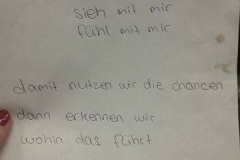 sieh mit mir
fühl mit mir
damit nutzen wir die chancen
dann erkennen wir
wohin das führt